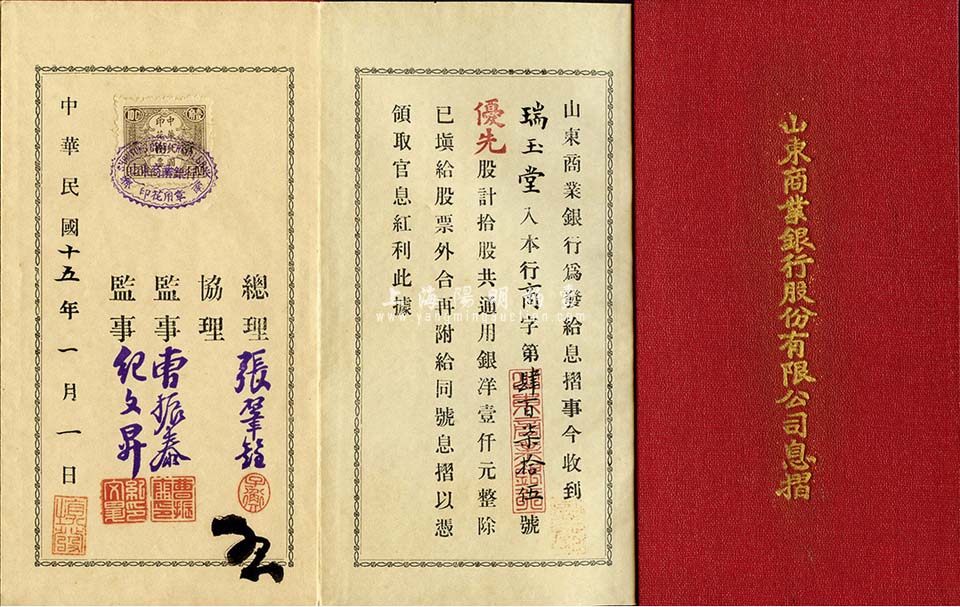 山東商業銀行股份有限公司息摺
山東商業銀行爲發給息摺事今收到
瑞玉堂入本行商字第肆百柒拾伍號
優先股計拾股共通用銀洋壹仟元整除
已塡給股票外合再附給同號息摺以憑
領取官息紅利此據
總理張肇銓
協理
監事曹振泰
監事紀文昇
中華民國十五年一月一日
山東商業銀行
印花用章
上海陽明拍賣
www.yangmingauction.com